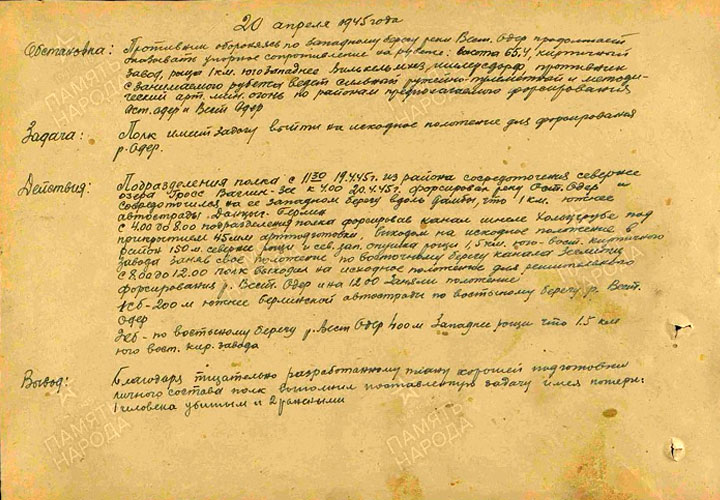 20 апреля 1945 года
Обстановка: Противник обороняясь по западному берегу реки Вест. Одер продолжает
оказывать упорное сопротивление на рубеже: высота 65,4, кирпичный
завод, роща 1 км. юго западнее противник
с занимаемого рубежа ведет сильный ружейно-пулеметный и методи-
ческий арт. мин. огонь по районам предполагаемого форсирования
Ост. Одер и Вест Одер
Задача: Полк имеет задачу выйти на исходное положение для форсирования
р. Одер.
Действия: Подразделения полка с 11 30 19.4.45г. из района сосредоточения севернее
озера к 4.00 20.4.45г. форсировал реку Ост. Одер и
сосредоточился на ее западном берегу вдоль дамбы, что 1 км. южнее
автострады Данциг-Берлин
с 4.00 до 8.00 подразделения полка форсировав канал под
прикрытием 45 мин артподготовки выходом на исходное положение в
район 150 м. севернее рощи и сев. зап. опушка рощи 1,5 км. юго-вост. кирпичного
завода заняв свое положение по восточному берегу канала
с 8.00 до 12.00 полк выходил на исходное положение для решительного
форсирования р. Вест. Одер и на 12.00 занял положение:
1сб-200м южнее берлинской автострады по восточному берегу р. Вест.
Одер
2сб-по восточному берегу р. Вест Одер 400м западнее рощи что 1.5 км
юго вост. кир. завода
Вывод: Благодаря тщательно разработанному плану хорошей подготовки
личного состава полк выполнил поставленную задачу имея потери:
1 человека убитым и 2 ранеными
ПАМЯТЬ
НАРОДА
ПАМЯТЬ
НАРОДА
ПАМЯТЬ
НАРОДА